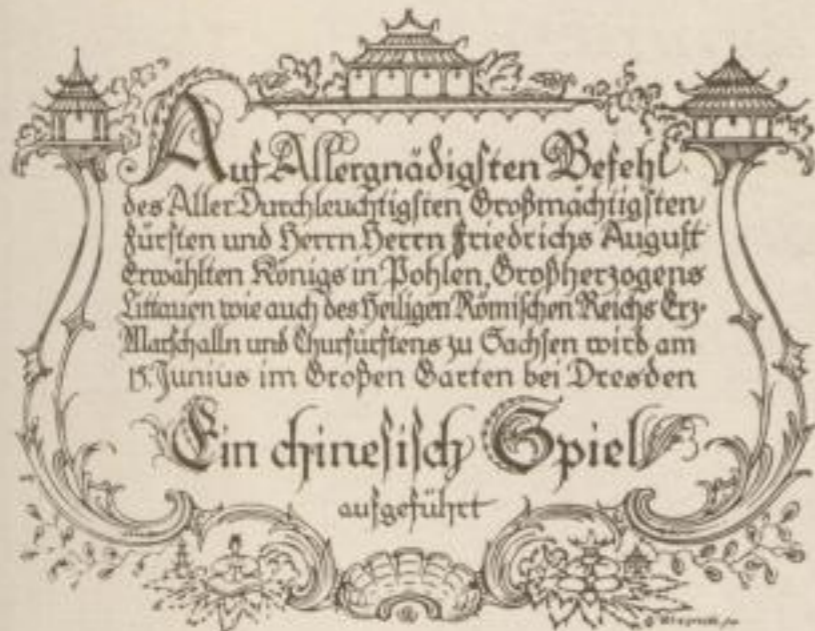 Auf Allergnädigsten Befehl
des Aller Durchleuchtigsten Großmächtigsten
Fürsten und Herrn Herrn Friedrichs August
Erwählten Königs in Pohlen, Großherzogens
Littauen wie auch des Heiligen Römischen Reichs Erz-
Marschalln und Churfürstens zu Sachsen wird am
15. Junius im Großen Garten bei Dresden
Ein chinesisch Spiel
aufgeführt